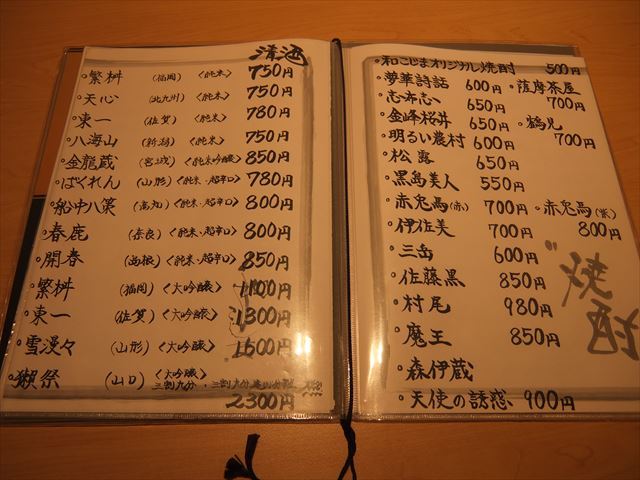 清酒
・繁桝 (福岡) <純米> 750円
・天心 (北九州) <純米> 750円
・東一 (佐賀) <純米> 780円
・八海山 (新潟) <純米> 750円
・金龍蔵 (宮城) <純米大吟醸> 850円
・ばくれん (山形) <純米・超辛口> 780円
・船中八策 (高知) <純米・超辛口> 800円
・春鹿 (奈良) <純米・超辛口> 800円
・開春 (島根) <純米・超辛口> 850円
繁桝 (福岡) <大吟醸> 1100円
・東一 (佐賀) <大吟醸> 1300円
・雪漫々 (山形) <大吟醸> 1600円
・獺祭 (山口) <大吟醸>
三割九分
2300円
・和こじまオリジナル焼酎 500円
・夢華詩話 600円 ・薩摩茶屋 700円
・志布志い 650円
・金峰桜井 650円 ・鶴見 700円
・明るい農村 600円
・松露 650円
・黒島美人 550円
・赤兎馬(赤) 700円 ・赤兎馬(紫) 800円
・伊佐美 700円
・三岳 600円
・佐藤黒 850円
・村尾 980円
・魔王 850円
・森伊蔵
・天使の誘惑 900円
焼酎